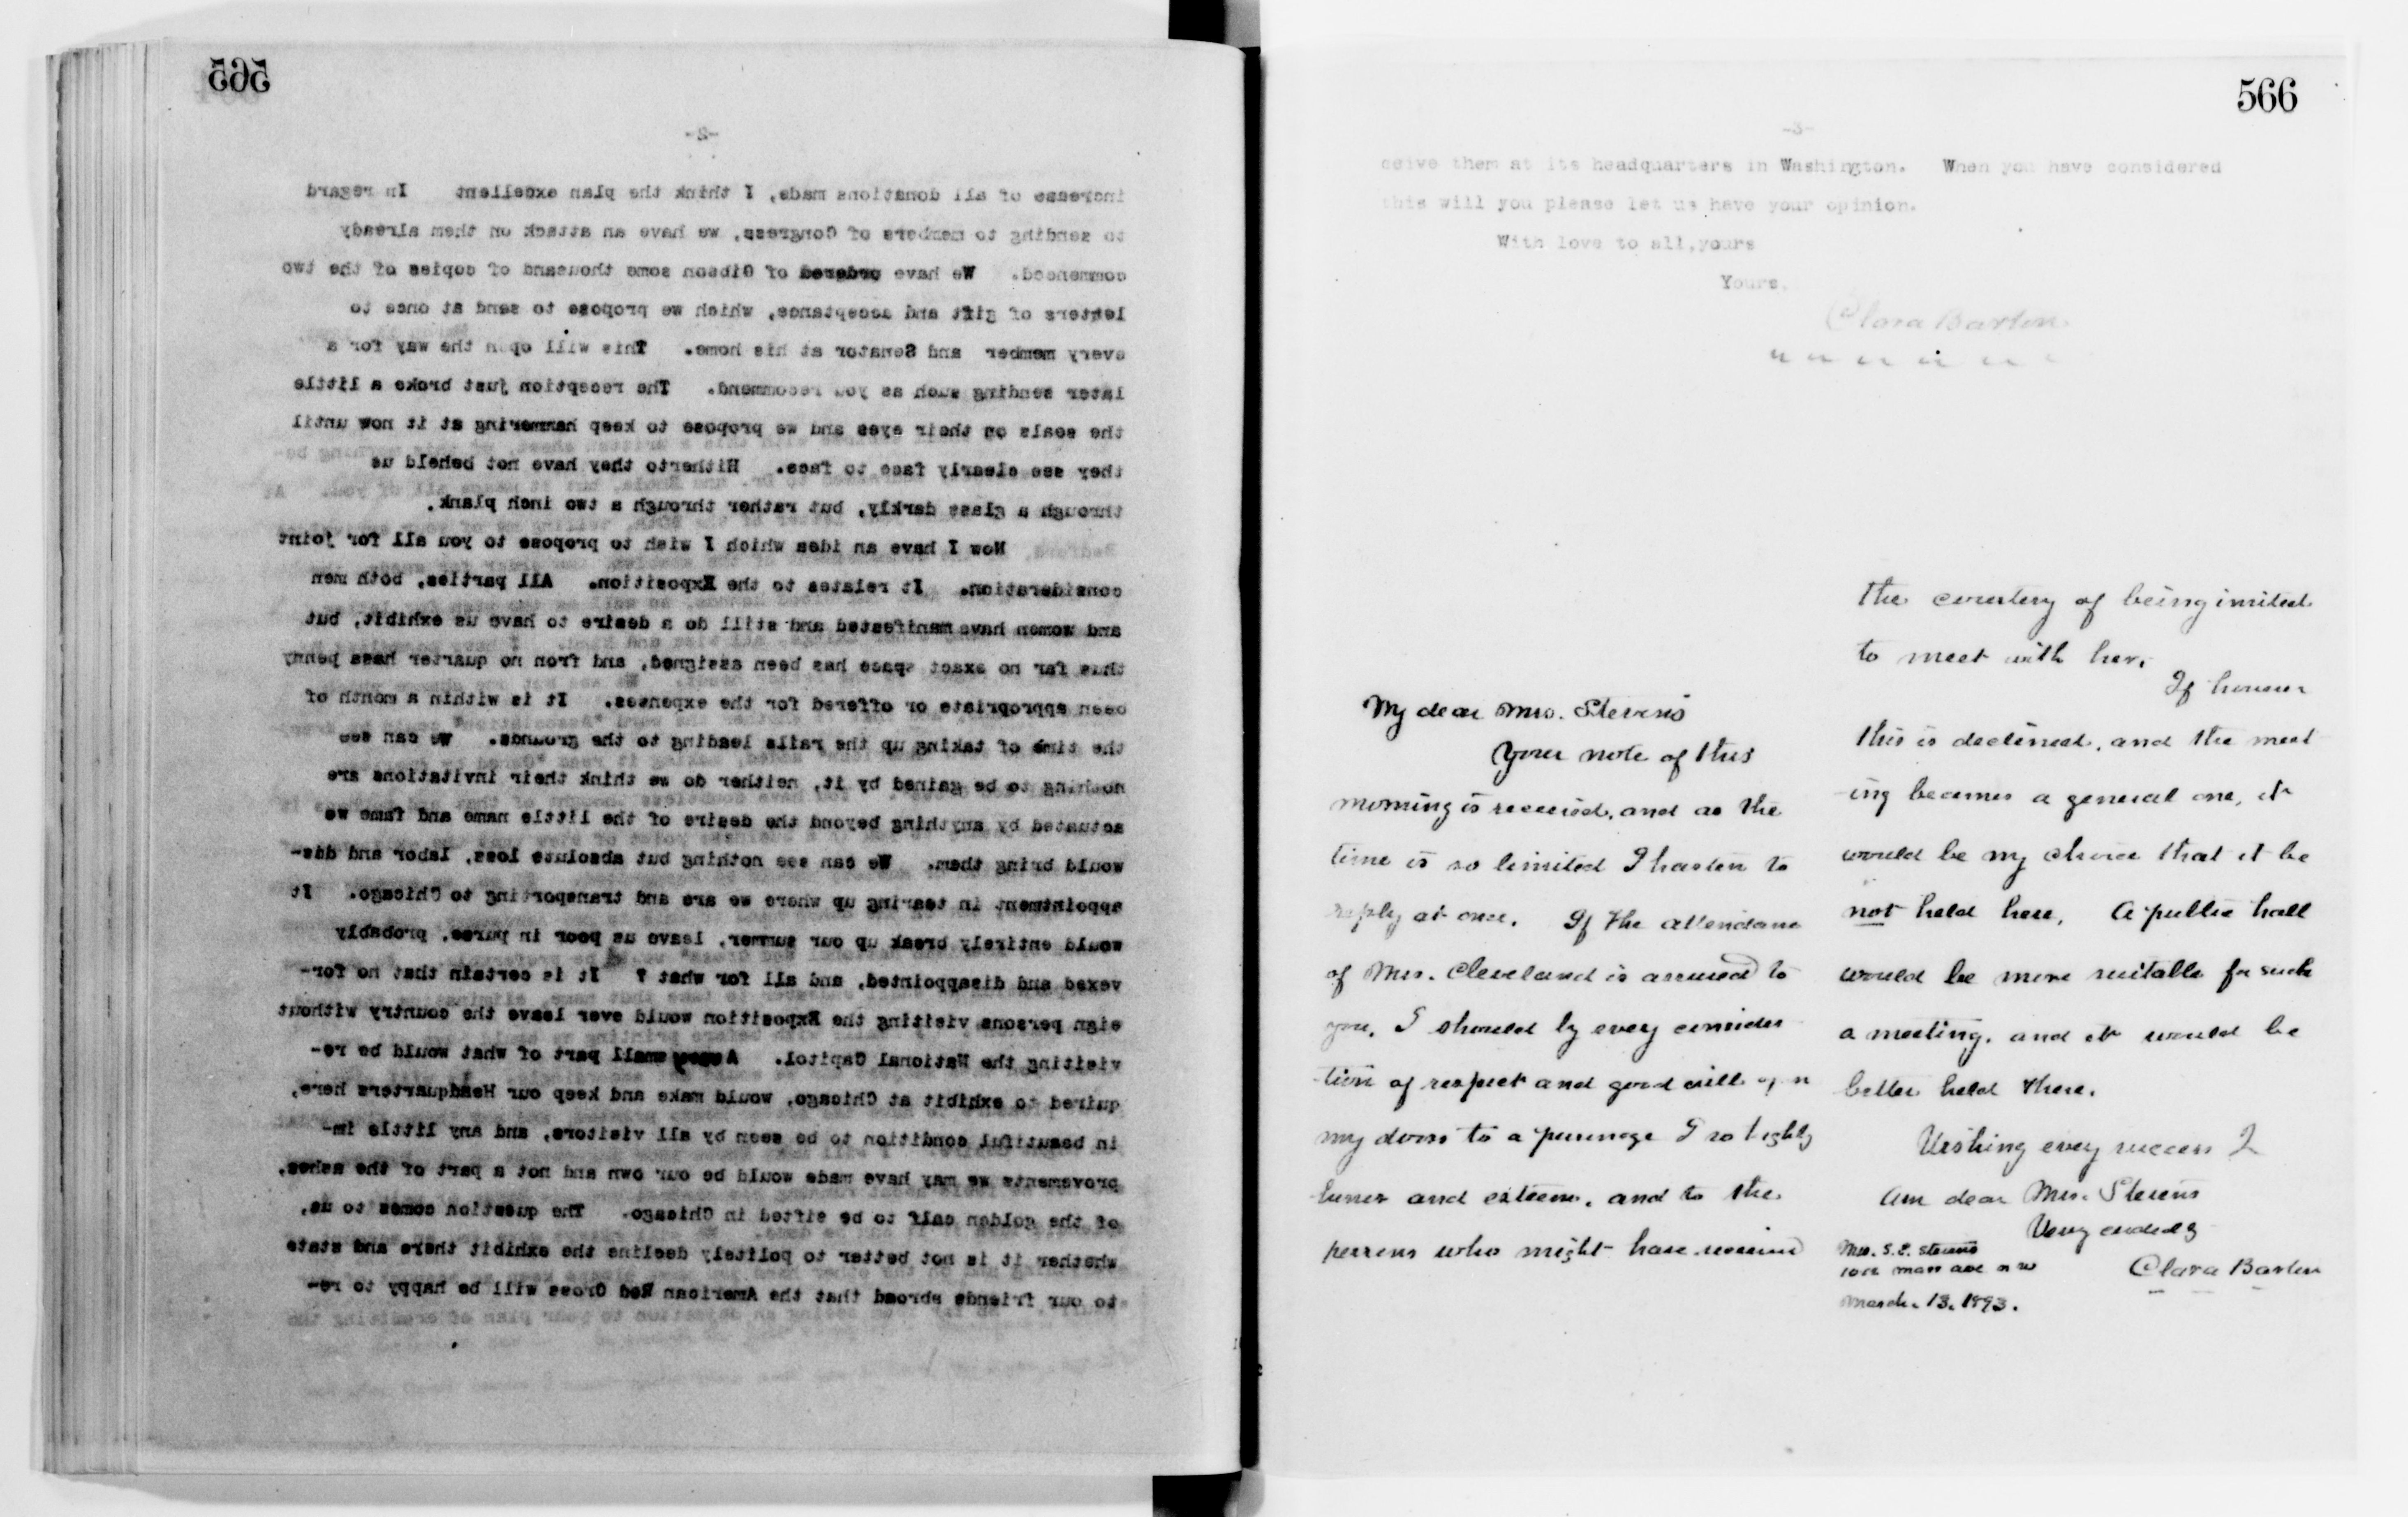 565
-2-
increase of all donations made, I think the plan excellent In regard
to sending to members of Congress, we have an attack on them already
commenced. We have ordered of Gibson some thousand of copies of the two
letters of gift and acceptance, which we propose to send at once to
every member and Senator at his home. This will open the way for a
later sending such as you recommend. The reception just broke a little
the seals on their eyes and we propose to keep hammering at it now until
ther see clearly face to face. Hitherto they have not beheld us
through a glass darkly, but rather through a two inch plank.
Now I have an idea which I wish to propose to you all for joint
consideration. It relates to the Exposition. All parties, both men
and women have manifested and still do a desire to have us exhibit, but
thus far no exact space has been assigned, and fron no quarter hasa penny
been appropriate or offered for the expenses. It is within a month of
the time of taking up the rails leading to the grounds. We can see
nothing to be gained by it, neither do we think their invitations are
actuated by anything beyond the desire of the little name and fame we
would bring them. We can see nothing but absolute loss, labor and dis-
appointment in tearing up where we are and transporting to Chicago. It
would entirely break up our summer, leave us poor in purse, probably
vexed and disappointed, and all for what ? It is certain that no for-
eign persons visiting the Exposition would ever leave the country without
visiting the National Capitol. A very small part of what would be re-
quired to exhibit at Chicago, would make and keep our Headquarters here,
in beautiful condition to be seen by all visitors, and any little im-
provements we may have made would be our own and not a part of the ashes,
of the golden calf to be sifted in Chicago. The question comes to us,
whether it is not better to politely decline the exhibit there and state
to our friends abroad that the American Red Cross will be happy to re-
566
-3-
ceive them at its headquarters in Washington. When you have considered
this will you please let us have your opinion.
With love to all,yours
Yours,
Clara Barton
" " " " " "
My dear Mrs. Stevens
Your note of this
morning is received, and as the
time is so limited I hasten to
reply at once. If the attendance
of Mrs. Cleveland is assured to
you, I should by every consider
-tion of respect and good will open
my doors to a personage I so highly
honor and esteem, and to the
persons who might have received
the courtesy of being invited
to meet with her.
If however
this is declined, and the meet
-ing becomes a general one, it
would be my choice that it be
not held here. A public hall
would be more suitable for such
a meeting, and it would be
better held there.
Wishing every success I
am dear Mrs. Stevens
Very cordially
Mrs. S. E. Stevens
Mass ave n w
Clara Barton
March. 13. 1893.